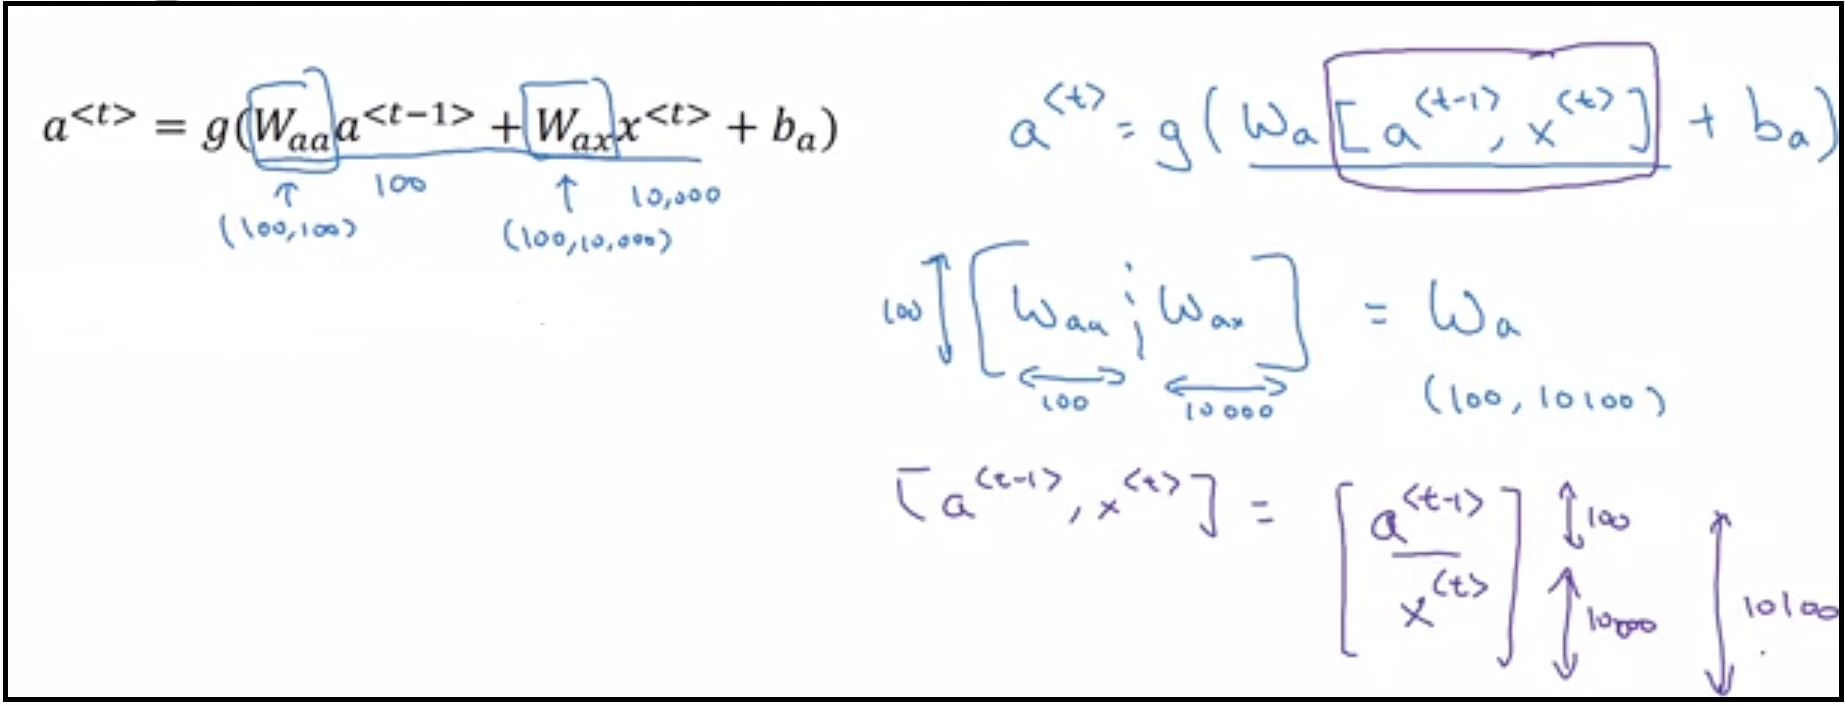 a<t> = g(Waa a<t-1> + Wax x<t> + ba)
↑ 100 ↑ 10,000
(100,100) (100,10,000)
a<t> = g(Wa [a<t-1>, x<t>] + ba)
100 [Waa ¦ Wax] = Wa
100 10000 (100, 10100)
[a<t-1>, x<t>] = [a<t-1> 100
x<t>] 10000 10100